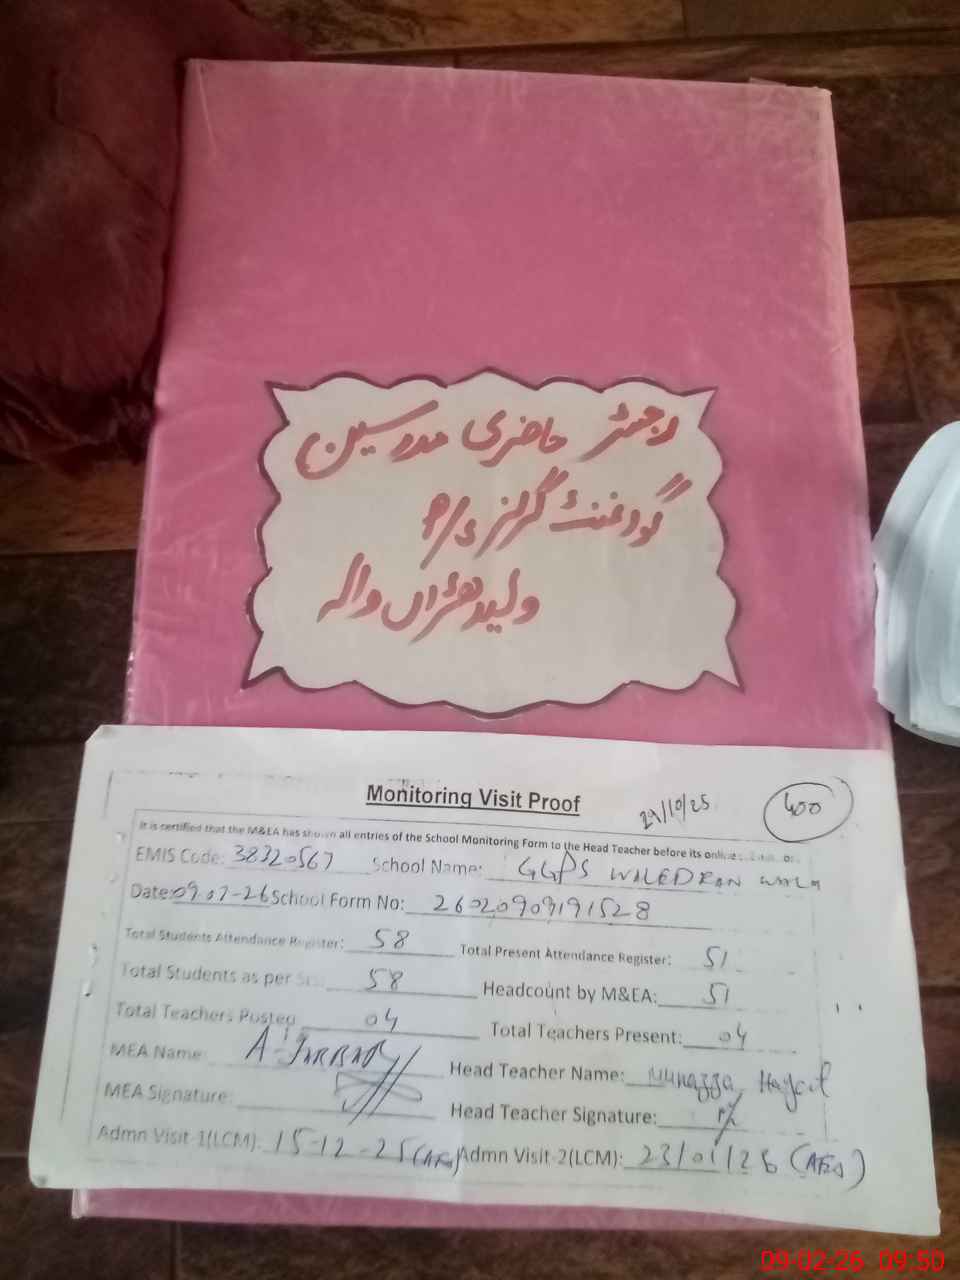 رجسٹر حاضری مدرسین
گورنمنٹ گرلز
ولیدھڑاں والہ
Monitoring Visit Proof
29/10/25
400
It is certified that the M&EA has shown all entries of the School Monitoring Form to the Head Teacher before its online
EMIS Code: 38320567 School Name: GGPS WALEDRAN WALA
Date: 09-02-26 School Form No: 26020909191528
Total Students Attendance Register: 58 Total Present Attendance Register: 51
Total Students as per 58 Headcount by M&EA: 51
Total Teachers Posted 04 Total Teachers Present: 04
MEA Name: Head Teacher Name: Munazza Hayat
MEA Signature: Head Teacher Signature:
Admn Visit-1(LCM): 15-12-25 (AEO) Admn Visit-2(LCM): 23/01/26 (AEO)
09-02-26 09:50